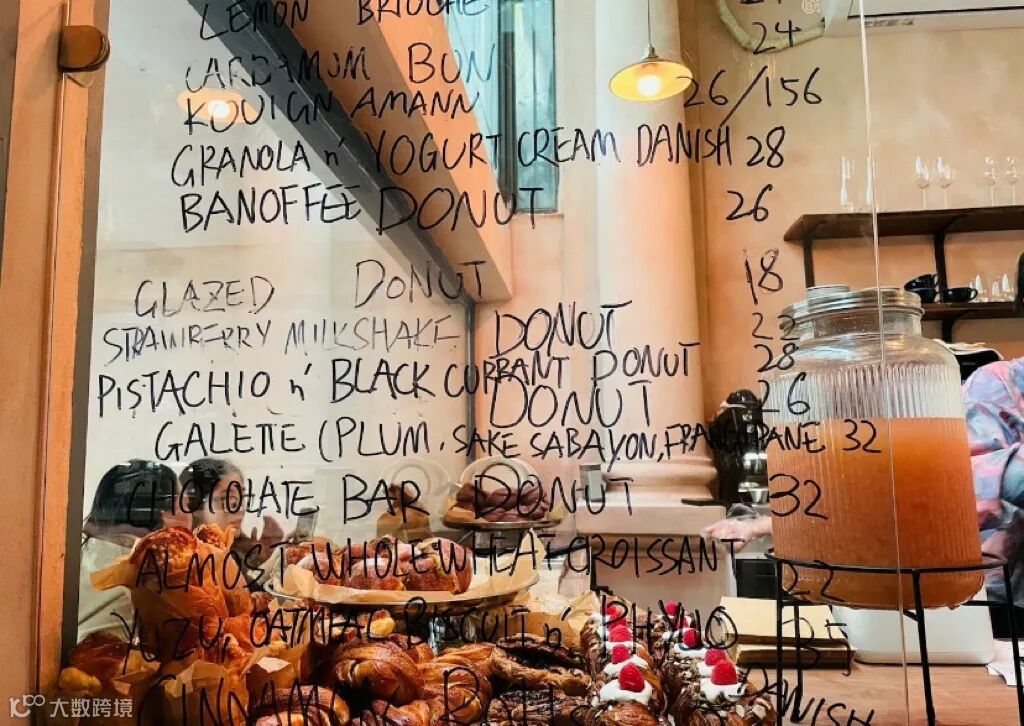 LEMON BRIOCHE
CARDAMOM BUN 24
KOUIGN AMANN 26/156
GRANOLA n' YOGURT CREAM DANISH 28
BANOFFEE DONUT 26
GLAZED DONUT 18
STRAWBERRY MILKSHAKE DONUT
PISTACHIO n' BLACK CURRANT DONUT 28
DONUT 26
GALETTE (PLUM, SAKE SABAYON, FRANGIPANE 32
CHOCOLATE BAR DONUT 32
ALMOST WHOLEWHEAT CROISSANT 22
YUZU, OATMEAL BISCUIT n' PHYLLO 35
CINNAMON
大数跨境